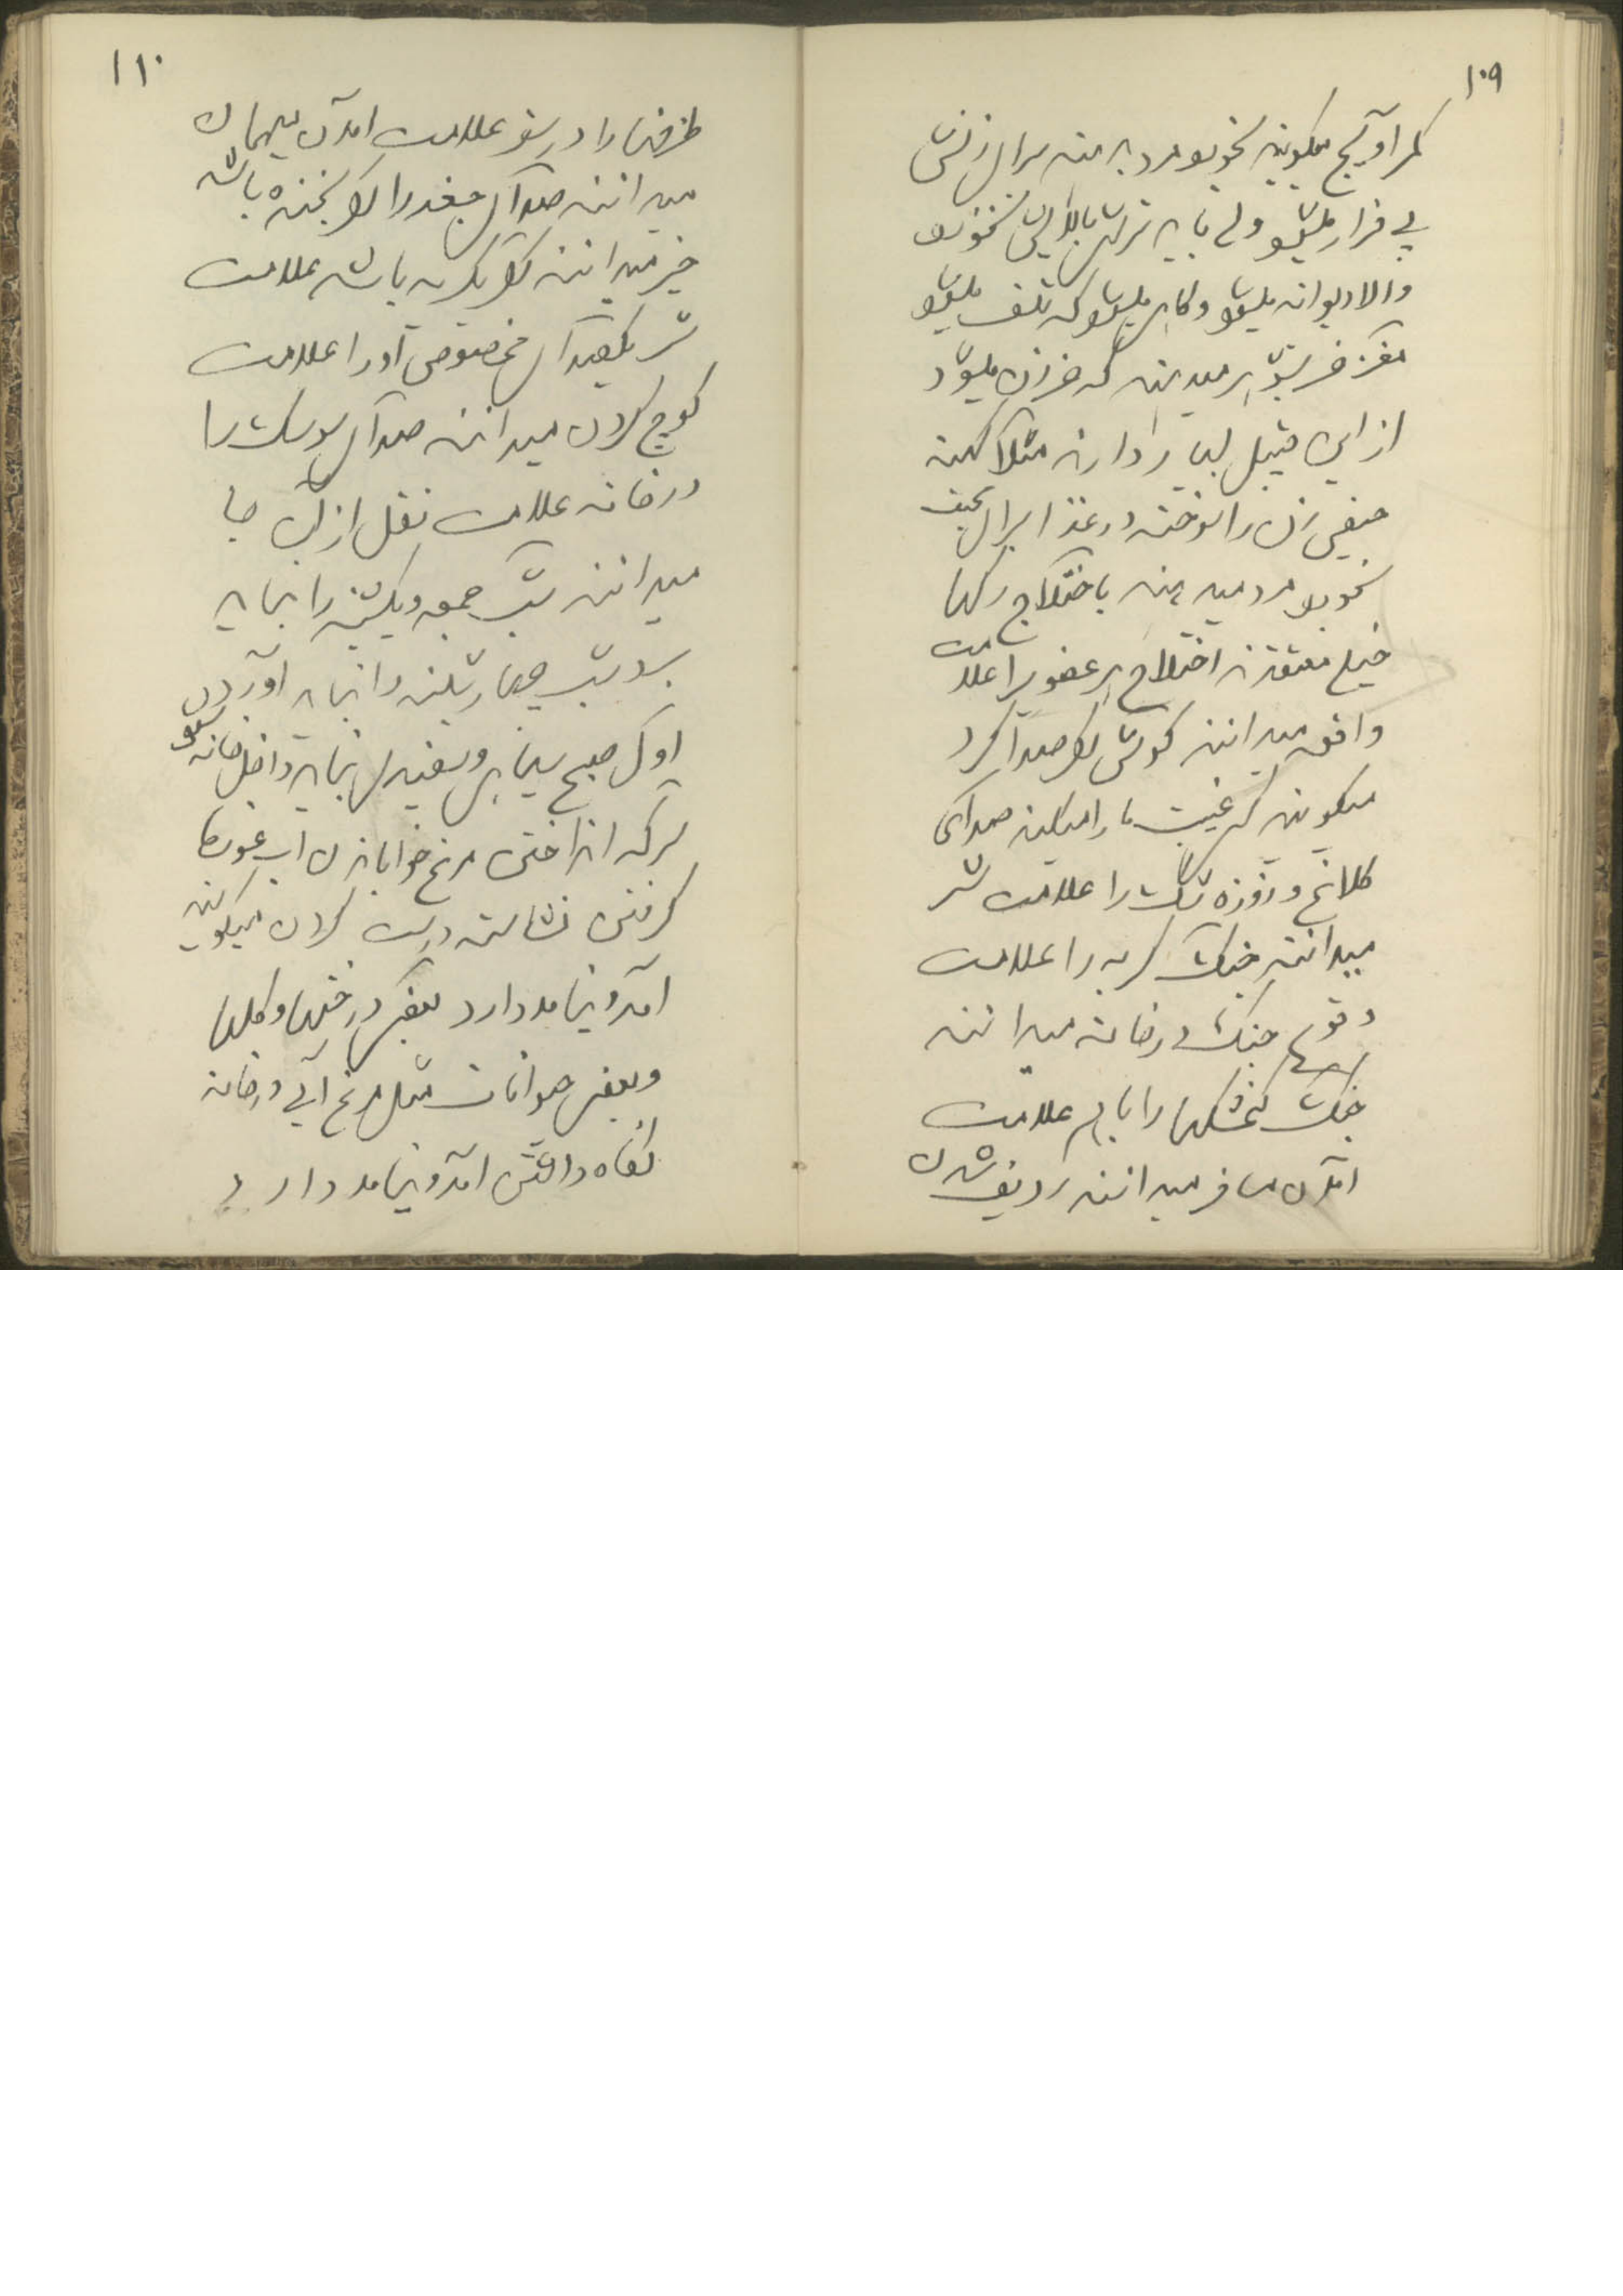 ۱۰۹
میگویند بخورد مرد بدهند برای زنش
بی قرار میشود ولی باید ترشی بالایش نخورد
والا دیوانه میشود و گاهی میشود که تلف میشود
مغز خر بشوهر میدهند که خر زن میشود
از این قبیل بسیار دارند مثلا کهنه
حیض زن را سوخته در غذا برای محبت
بخورد مرد میدهند باختلاج رگها
خیلی معتقدند اختلاج هر عضو را علامت
واقعه میدانند گوش که صدا کرد
میگویند که غیبت ما را میکنند صدای
کلاغ و زوزه سگ را علامت شر
میدانند جنگ گربه را علامت
وقوع جنگ در خانه میدانند
جنگ گنجشکها را با هم علامت
آمدن مسافر میدانند ردیف شدن
۱۱۰
ظرفها را در سفر علامت آمدن میهمان
میدانند صدای جغد را اگر بخنده باشد
خیر میدانند اگر بگریه باشد علامت
شر یکصدای مخصوصی دارد علامت
کوچ کردن میدانند صدای سوسک را
در خانه علامت نقل از آن جا
میدانند شب جمعه و یکشنبه را نباید
شب چهارشنبه را نباید آوردن
اول صبح سیاهی و سفیدی نباید داخل خانه شود
سرکه انداختن مرغ خوابانیدن آب غوره
گرفتن نشاسته درست کردن میگویند
آمد و نیامد دارد بعضی درختها و گلها
و بعضی حیوانات مثل مرغ آبی در خانه
نگاه داشتن آمد و نیامد دارد